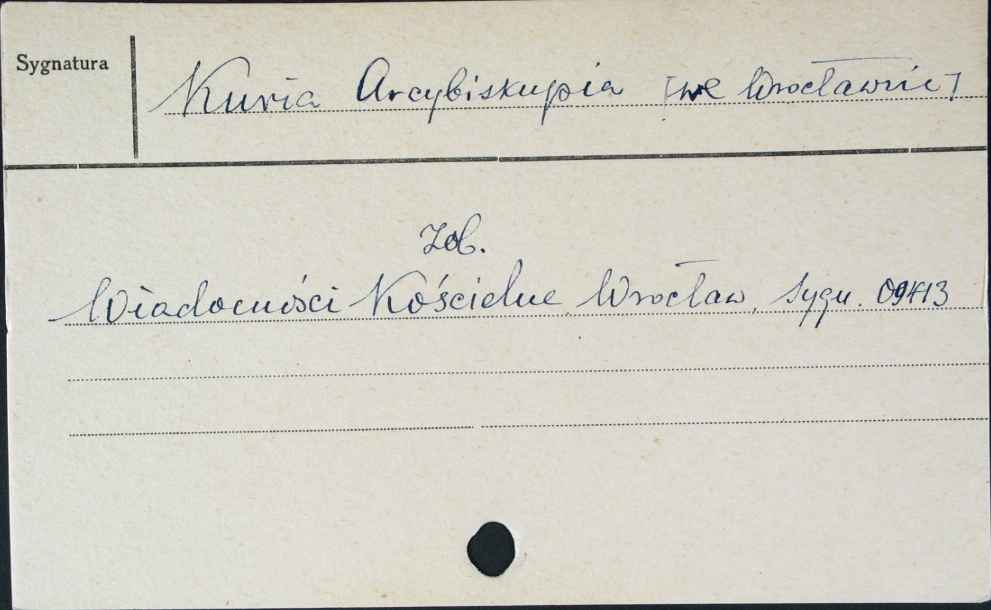 Sygnatura
Kuria Arcybiskupia [we Wrocławiu]
Zob.
Wiadomości Kościelne, Wrocław, Sygn. 09413